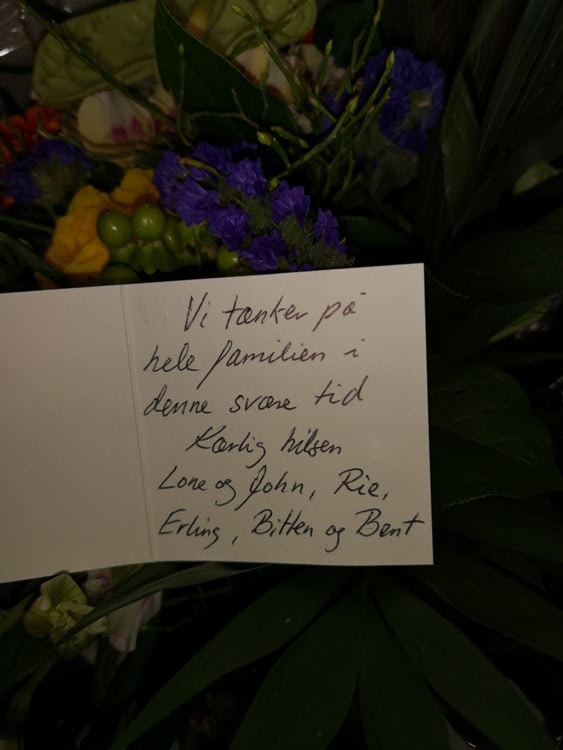 Vi tænker på
hele familien i
denne svære tid
Kærlig hilsen
Lone og John, Rie,
Erling, Bitten og Bent